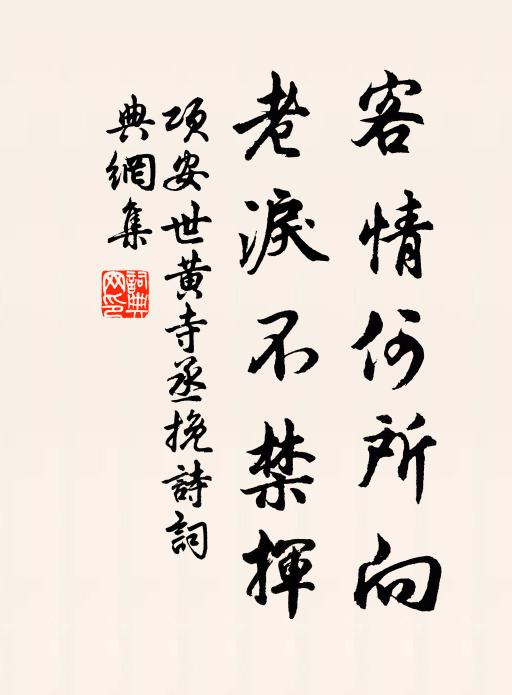 客情何所向
老淚不禁揮
項安世黃寺丞挽詩詞
典網集
詞典
网印